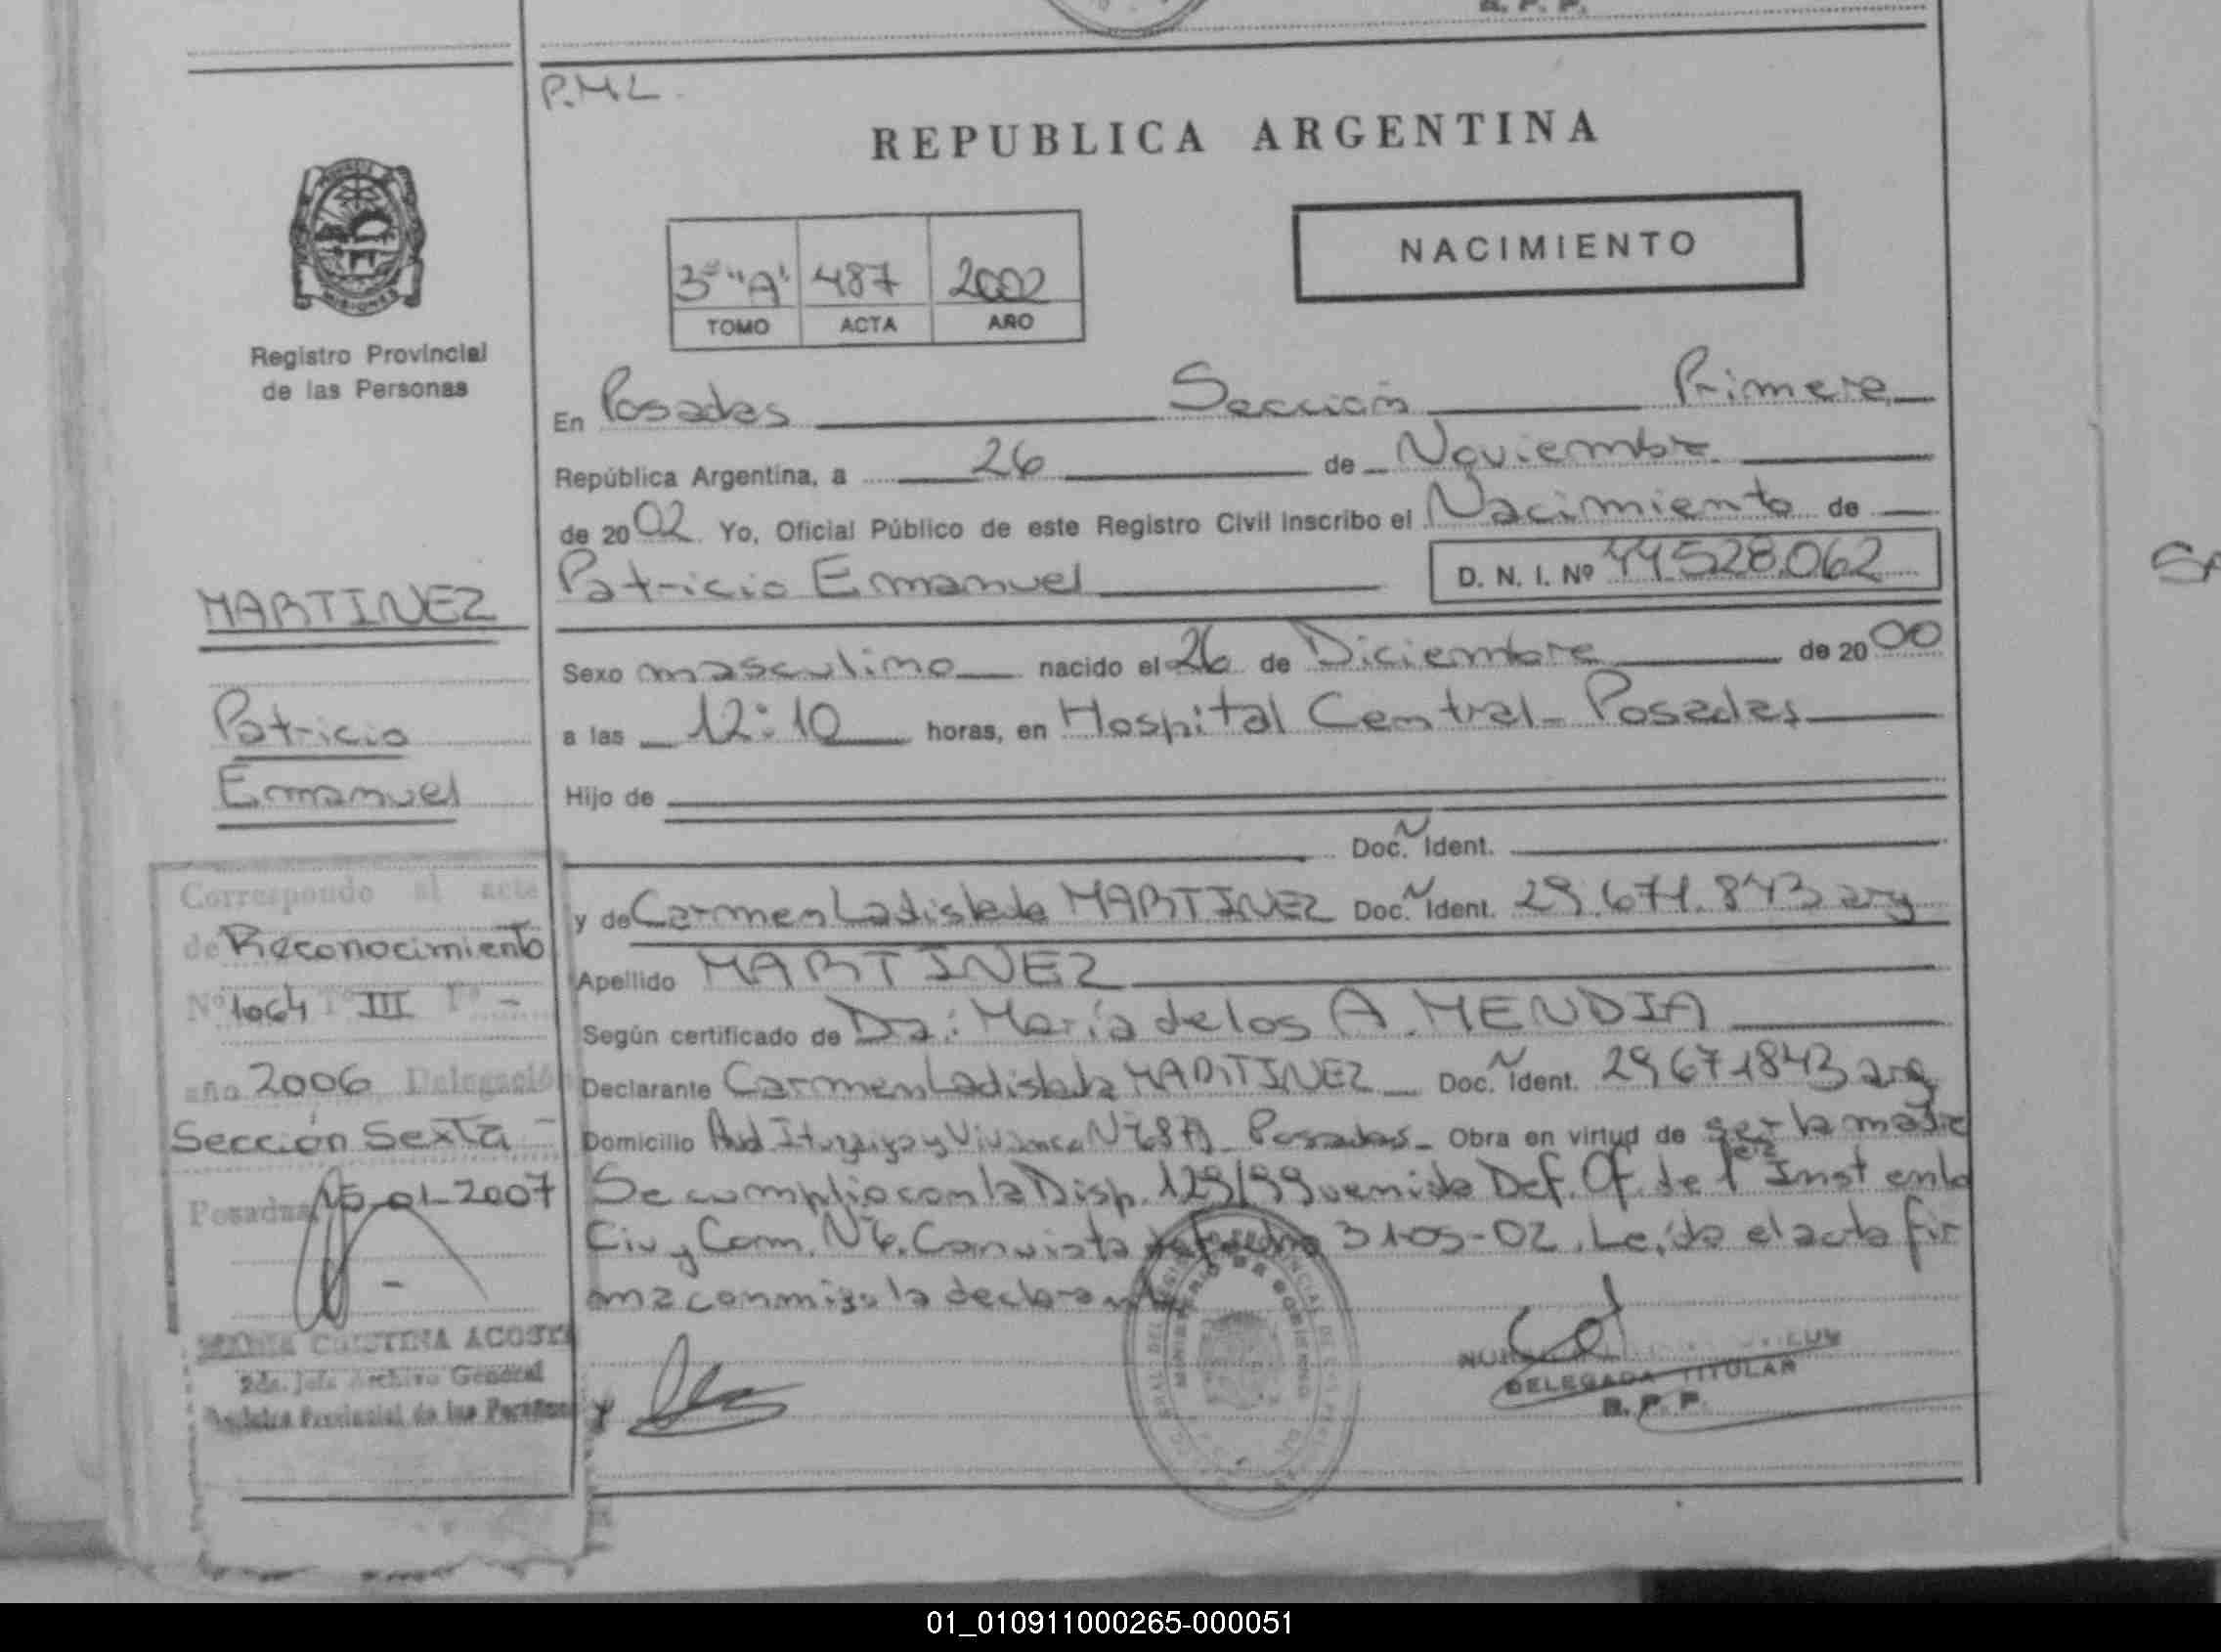 R. P. P.
P.M.L.
REPUBLICA ARGENTINA
NACIMIENTO
3º "A" 487 2002
TOMO ACTA AÑO
MISIONES
Registro Provincial
de las Personas
En Posadas Sección Primera
República Argentina, a 26 de Noviembre
de 2002. Yo, Oficial Público de este Registro Civil inscribo el Nacimiento de
Patricio Emanuel D. N. I. Nº 44528.062
MARTINEZ
Patricio
Emanuel
Sexo masculino nacido el 26 de Diciembre de 2000
a las 12:10 horas, en Hospital Central - Posadas
Hijo de
Doc. Ident.
y de Carmen Ladislada MARTINEZ Doc. Ident. 29.671.843 arg
Apellido MARTINEZ
Según certificado de Dra: María de los A. MENDIA
Declarante Carmen Ladislada MARTINEZ Doc. Ident. 29671843 arg
Domicilio Posadas - Obra en virtud de ser la madre
Se cumplio con la Disp. 129/99 venida Def. Of. de 1º Inst en lo
Civ y Com. Nº 6. Con vista de fecha 31-05-02. Leída el acta fir
ma conmigo la declarante
Corresponde al acta
de Reconocimiento
Nº 1064 Tº III Fº -
año 2006 Delegación
Sección Sexta -
Posadas, 15-01-2007
MARIA CRISTINA ACOSTA
2da. Jefe Archivo General
Registro Provincial de las Personas
DELEGADA TITULAR
R. P. P.
01_010911000265-000051